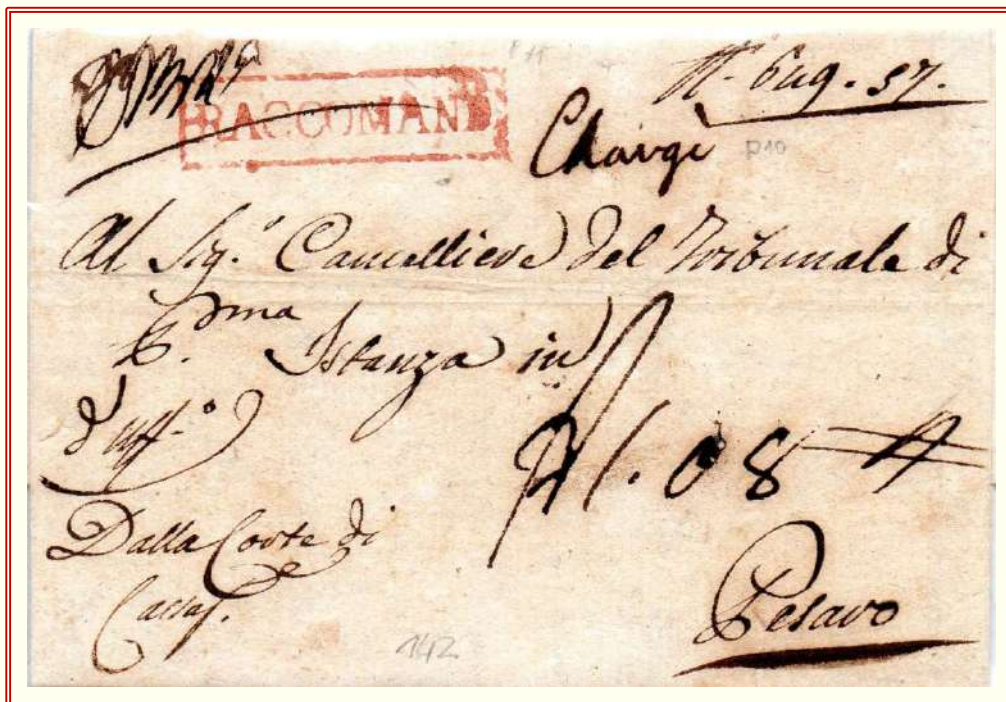 RACCOMAND
Chargè
P10
Al Sig.r Cancelliere del Tribunale di
P.ma Istanza in
d'uff.o
08
Dalla Corte di
Cassaz.
Pesaro
142